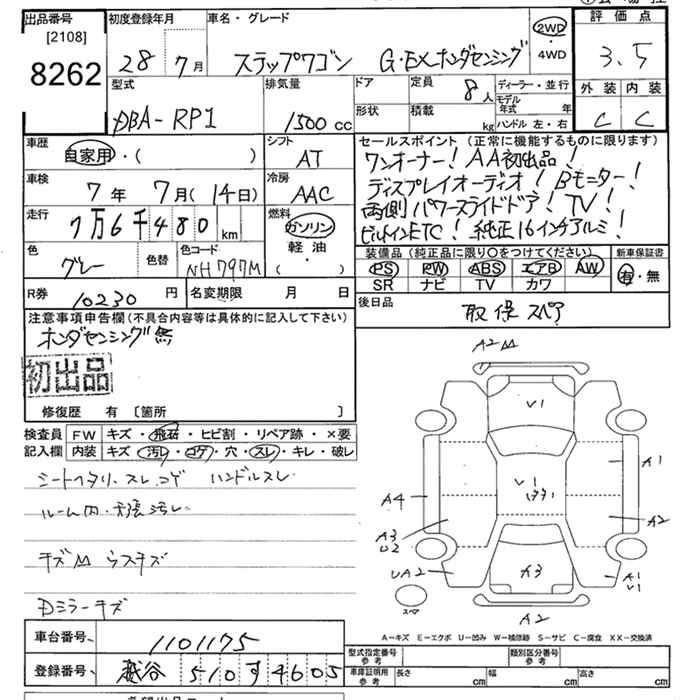 出品番号 初度登録年月 車名・グレード 評価点
[2108]
8262
28年 7月 ステップワゴン G・EXホンダセンシング 2WD・4WD 3.5
型式 排気量 ドア 定員 8人 ディーラー・並行 外装 内装
DBA-RP1 1500cc 形状 積載 kg モデル年式 年 ハンドル 左・右 C C
車歴 自家用・( ) シフト AT
セールスポイント (正常に機能するものに限ります)
ワンオーナー! AA初出品!
ディスプレイオーディオ! Bモニター!
両側パワースライドドア! TV!
ビルトインETC! 純正16インチアルミ!
車検 7年 7月(14日) 冷房 AAC
走行 7万6千480km 燃料 ガソリン 軽油 ( )
色 グレー 色替 色コード NH797M
装備品 (純正品に限り○をつけてください) 新車保証書
PS PW ABS エアB AW 有・無
SR ナビ TV カワ
R券 10230円 名変期限 月 日
後日品 取 保 スペア
注意事項申告欄(不具合内容等は具体的に記入して下さい)
ホンダセンシング無
初出品
修復歴 有 〔箇所 〕
検査員記入欄 FW キズ・飛石・ヒビ割・リペア跡・×要
内装 キズ・汚レ・コゲ・穴・スレ・キレ・破レ
シートヘタリ、スレ、コゲ ハンドルスレ
ルーム内・天張汚レ
キズM ウスキズ
Dミラーキズ
A2M
V1
V1
A1
A4
A2
A3
U2
UA2
A3
A1
V1
スペア
A2
A-キズ E-エクボ U-凹み W-補修跡 S-サビ C-腐食 XX-交換済
車台番号、 1101175
登録番号、 越谷 510す4605
型式指定番号 参考 類別区分番号 参考
車庫証明用 参考 長さ cm 幅 cm 高さ cm